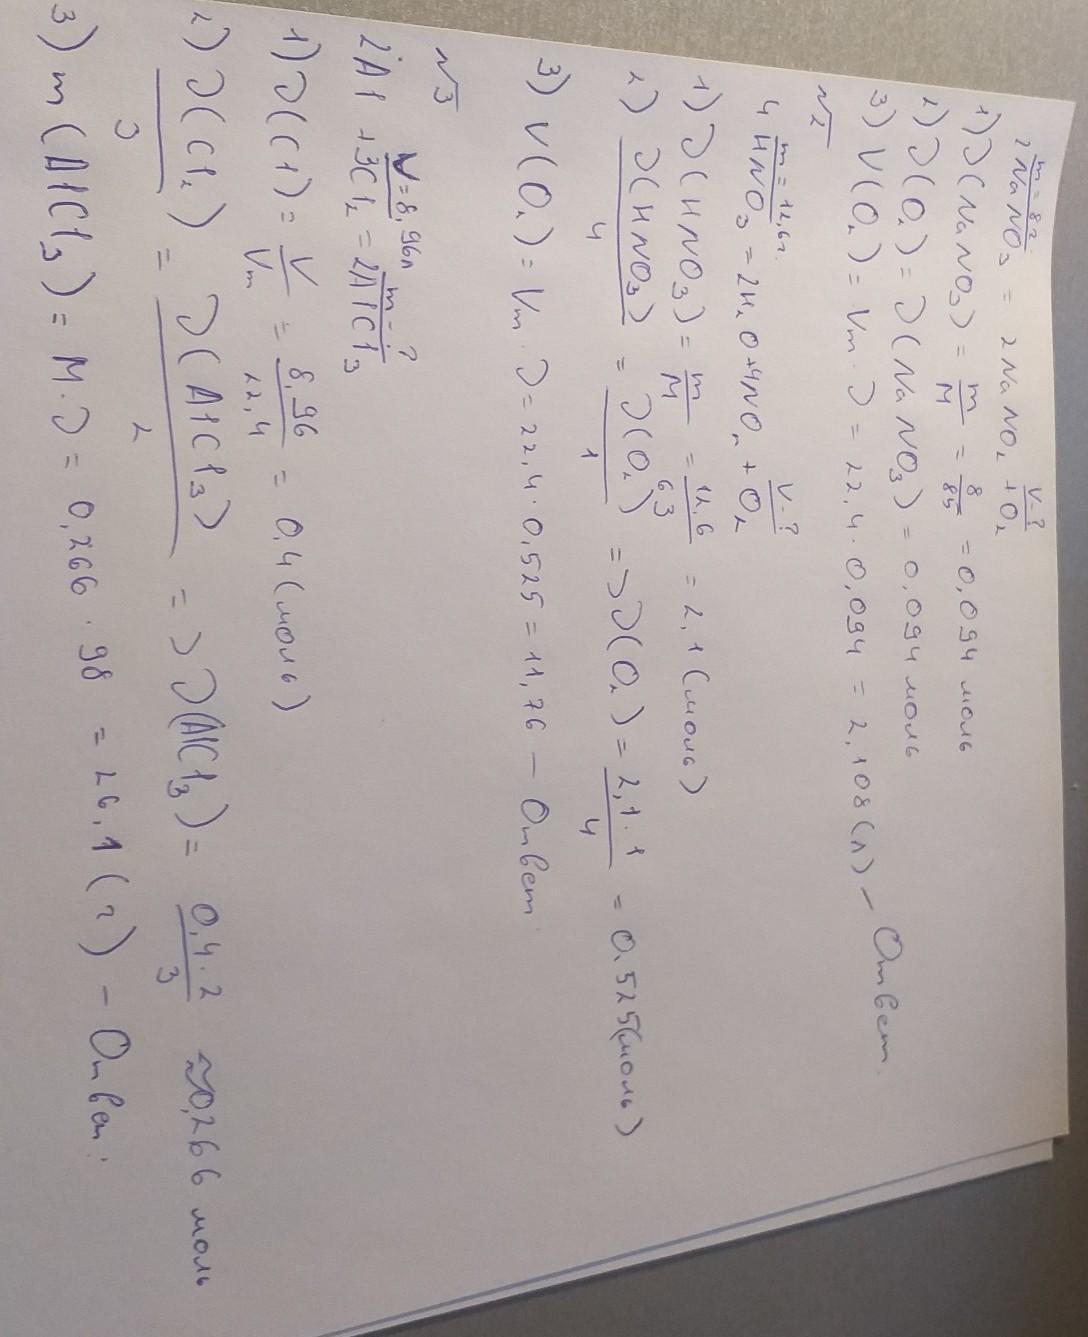 m = 8г V - ?
2NaNO₃ = 2NaNO₂ + O₂
1) ν(NaNO₃) = m/M = 8/85 = 0,094 моль
2) ν(O₂) = ν(NaNO₃) = 0,094 моль
3) V(O₂) = Vm · ν = 22,4 · 0,094 = 2,108(л) – Ответ.
№2
m = 12,6г. V - ?
4HNO₃ = 2H₂O + 4NO₂ + O₂
1) ν(HNO₃) = m/M = 12,6/63 = 2,1(моль)
2) ν(HNO₃)/4 = ν(O₂)/1 => ν(O₂) = 2,1·1/4 = 0.525(моль)
3) V(O₂) = Vm · ν = 22,4 · 0,525 = 11,76 – Ответ.
№3
V = 8,96л m - ?
2Al + 3Cl₂ = 2AlCl₃
1) ν(Cl) = V/Vm = 8,96/22,4 = 0,4(моль)
2) ν(Cl₂)/3 = ν(AlCl₃)/2 => ν(AlCl₃) = 0,4·2/3 ≈0,266 моль
3) m(AlCl₃) = M·ν = 0,266 · 98 = 26,1(г) – Ответ.